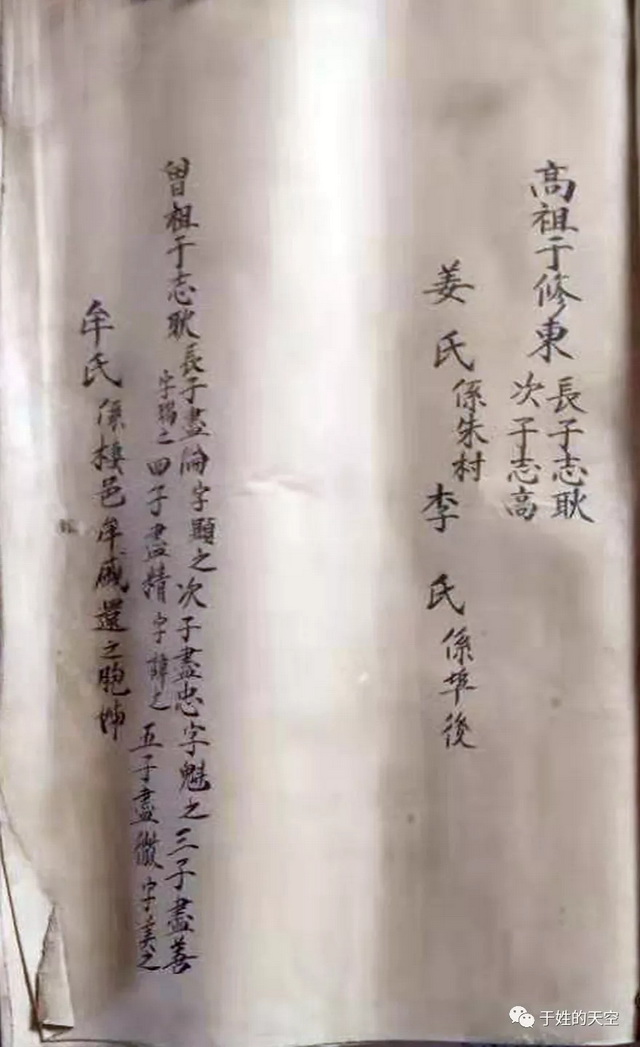 高祖于修東
長子志耿
次子志高
姜氏係朱村 李氏係埠後
曾祖于志耿長子盡倫字顯之次子盡忠字魁之三子盡善
字瑞之四子盡精字諱之五子盡徽字美之
牟氏係棲邑牟戚還之胞姊
于姓的天空